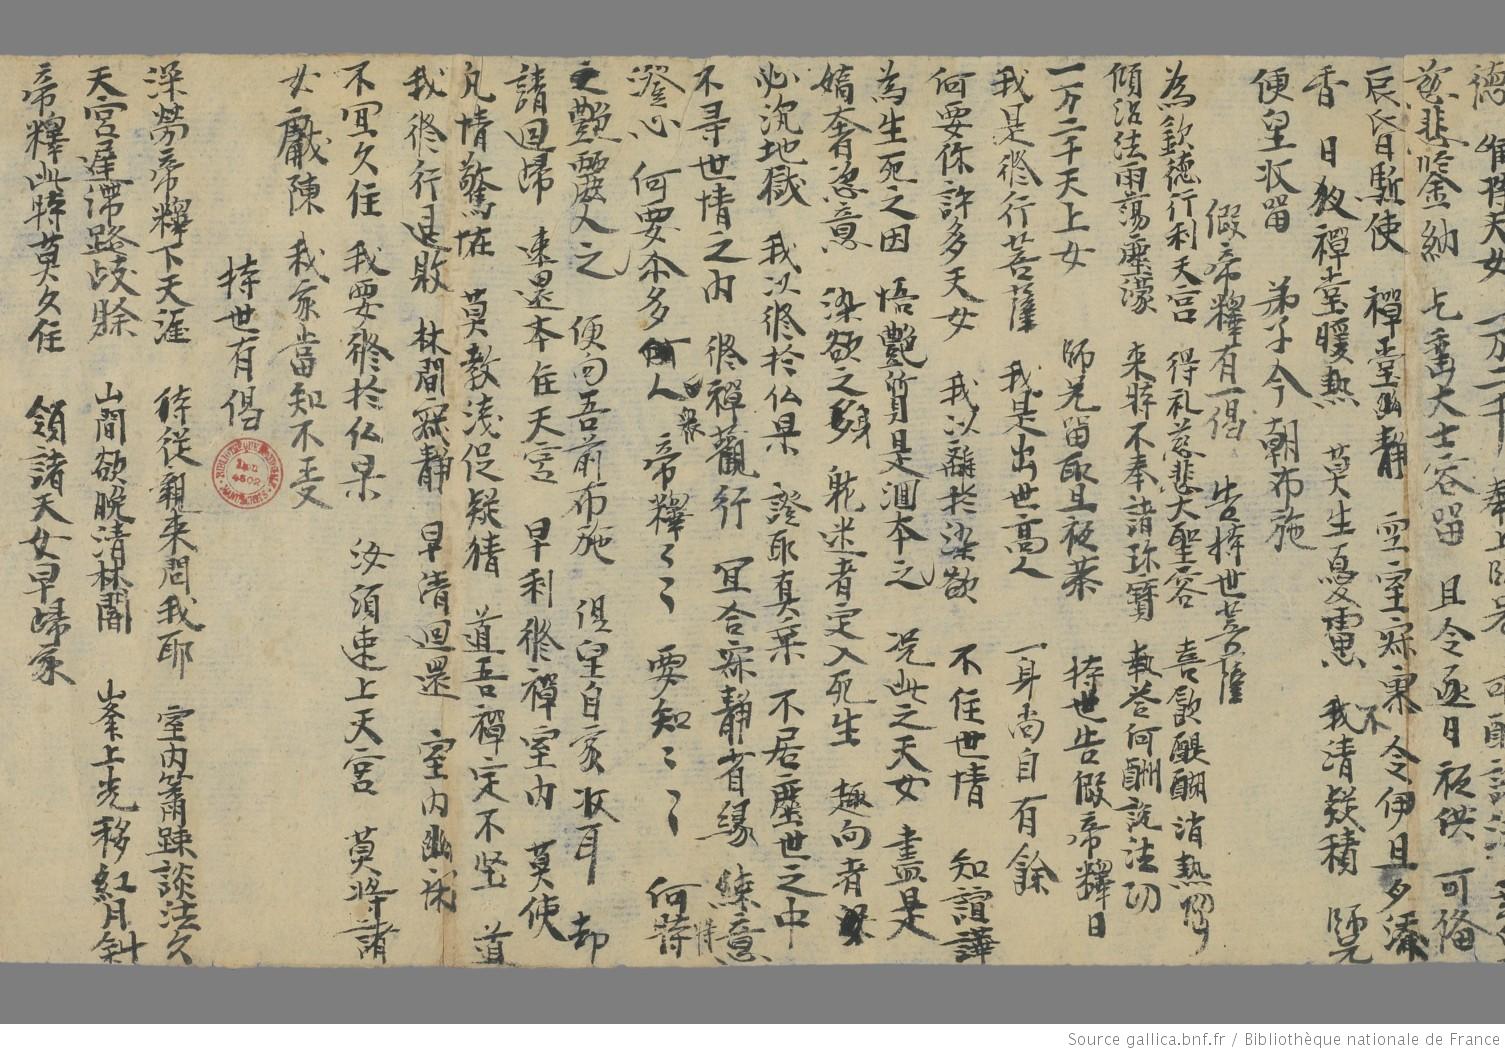 慈悲鑒納 乞垂大士容留 且令逐日祇供 可備
辰昏駈使 禪堂幽静 空室寂寞 不令伊旦夕添
香 日夜禪堂暖熱 莫生憂慮 我清疑積 師兄
便望收留 弟子今朝布施
假帝釋有一偈 告持世菩薩
為欽德行利天宮 得礼慈悲大聖容 喜飲醍醐消熱惱
傾沾法雨蕩塵濛 来時不奉諸珎寶 執荅何酬説法功
一万二千天上女 師兄留取且祇恭 持世告假帝釋曰
我是修行菩薩 我是出世高人 一身尚自有餘
何要你許多天女 我以離於染欲 不住世情 知諠譁
為生死之因 悟艷質是洄本之 况此之天女 盡是
嬌奢恣意 染欲之身 躭迷者定入死生 趣向者
必沉地獄 我以修於仏果 證取真乘 不居塵世之中
不寻世情之内 修禪觀行 冝合寂静省緣 練意
澄心 何要你多人衆 帝釋〻〻 要知〻〻 何將
之艷麗人之 便向吾前布施 但望自家收耳 却
請迴歸 速還本住天宮 早利修禪室内 莫使
凡情驚怪 莫教淺促疑猜 道吾禪定不坚 道
我修行退敗 林間寂静 早清迴還 室内幽閑
不冝久住 我要修於仏果 汝須速上天宮 莫將諸
女獻陳 我家當知不受
持世有偈
深勞帝釋下天涯 待從親来問我耶 室内蕭踈談法久
天宮遲滯路歧賒 山間欲晚清林闇 山峯上光移紅月斜
帝釋此時莫久住 領諸天女早歸家
Source gallica.bnf.fr / Bibliothèque nationale de France